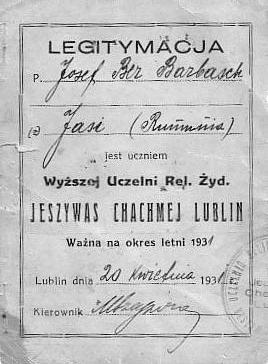 LEGITYMACJA
P. Josef Ber Barbasch
(z) Jasi (Rumunia)
jest uczniem
Wyższej Uczelni Rel. Żyd.
JESZYWAS CHACHMEJ LUBLIN
Ważna na okres letni 1931
Lublin dnia 20 kwietnia 1931
Kierownik